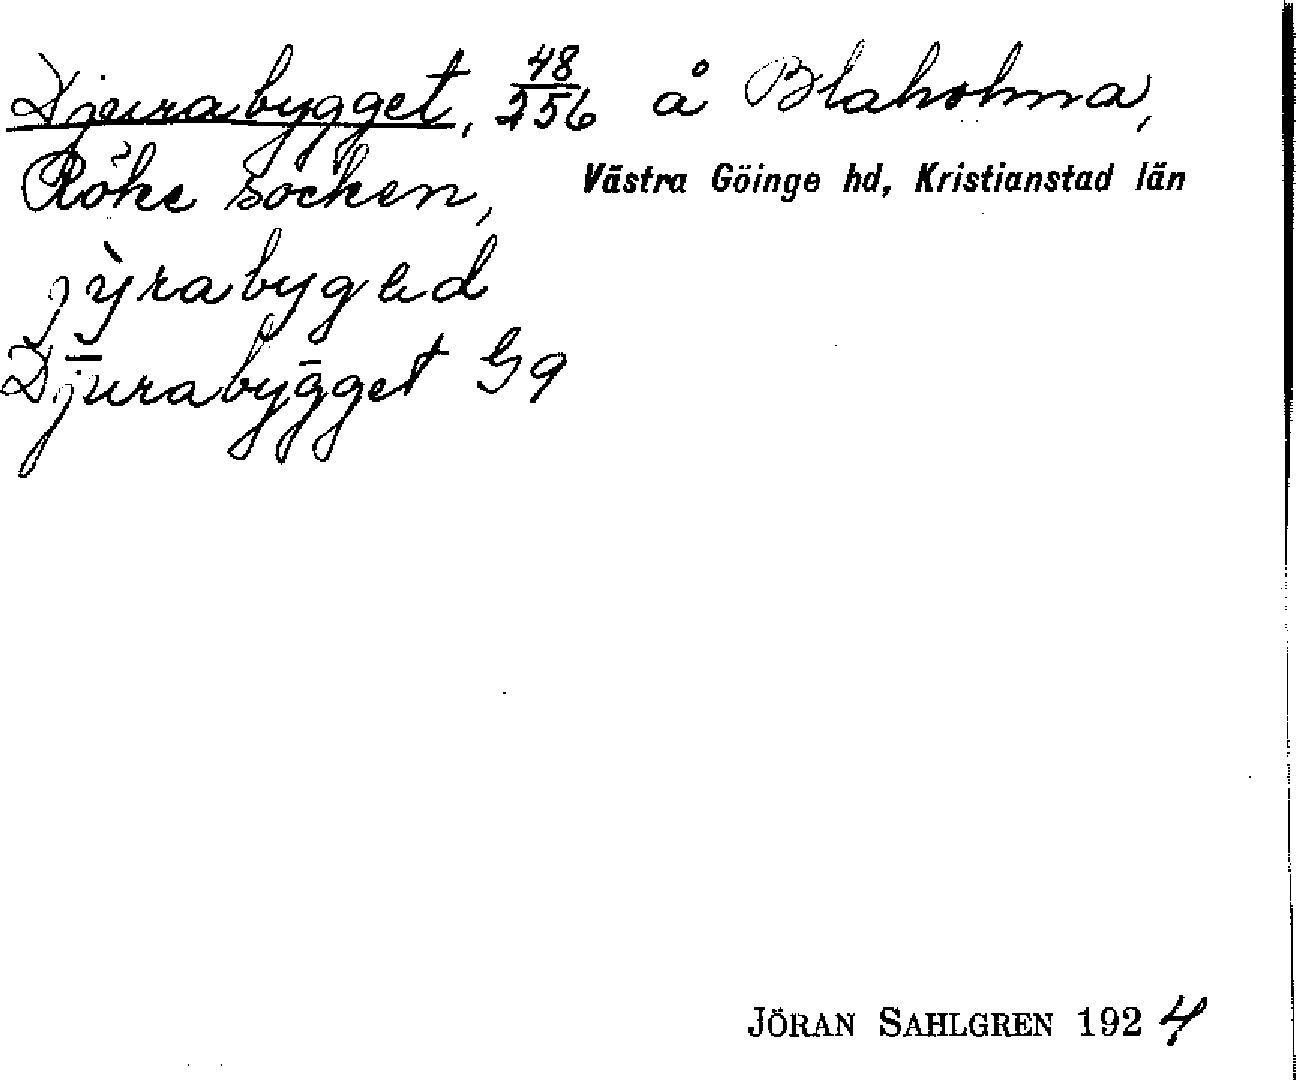 Djurabygget, 48/256 å Blaholma,
Röke socken, Västra Göinge hd, Kristianstad län
jỳrabygəd
Djurabygget G9
JÖRAN SAHLGREN 1924